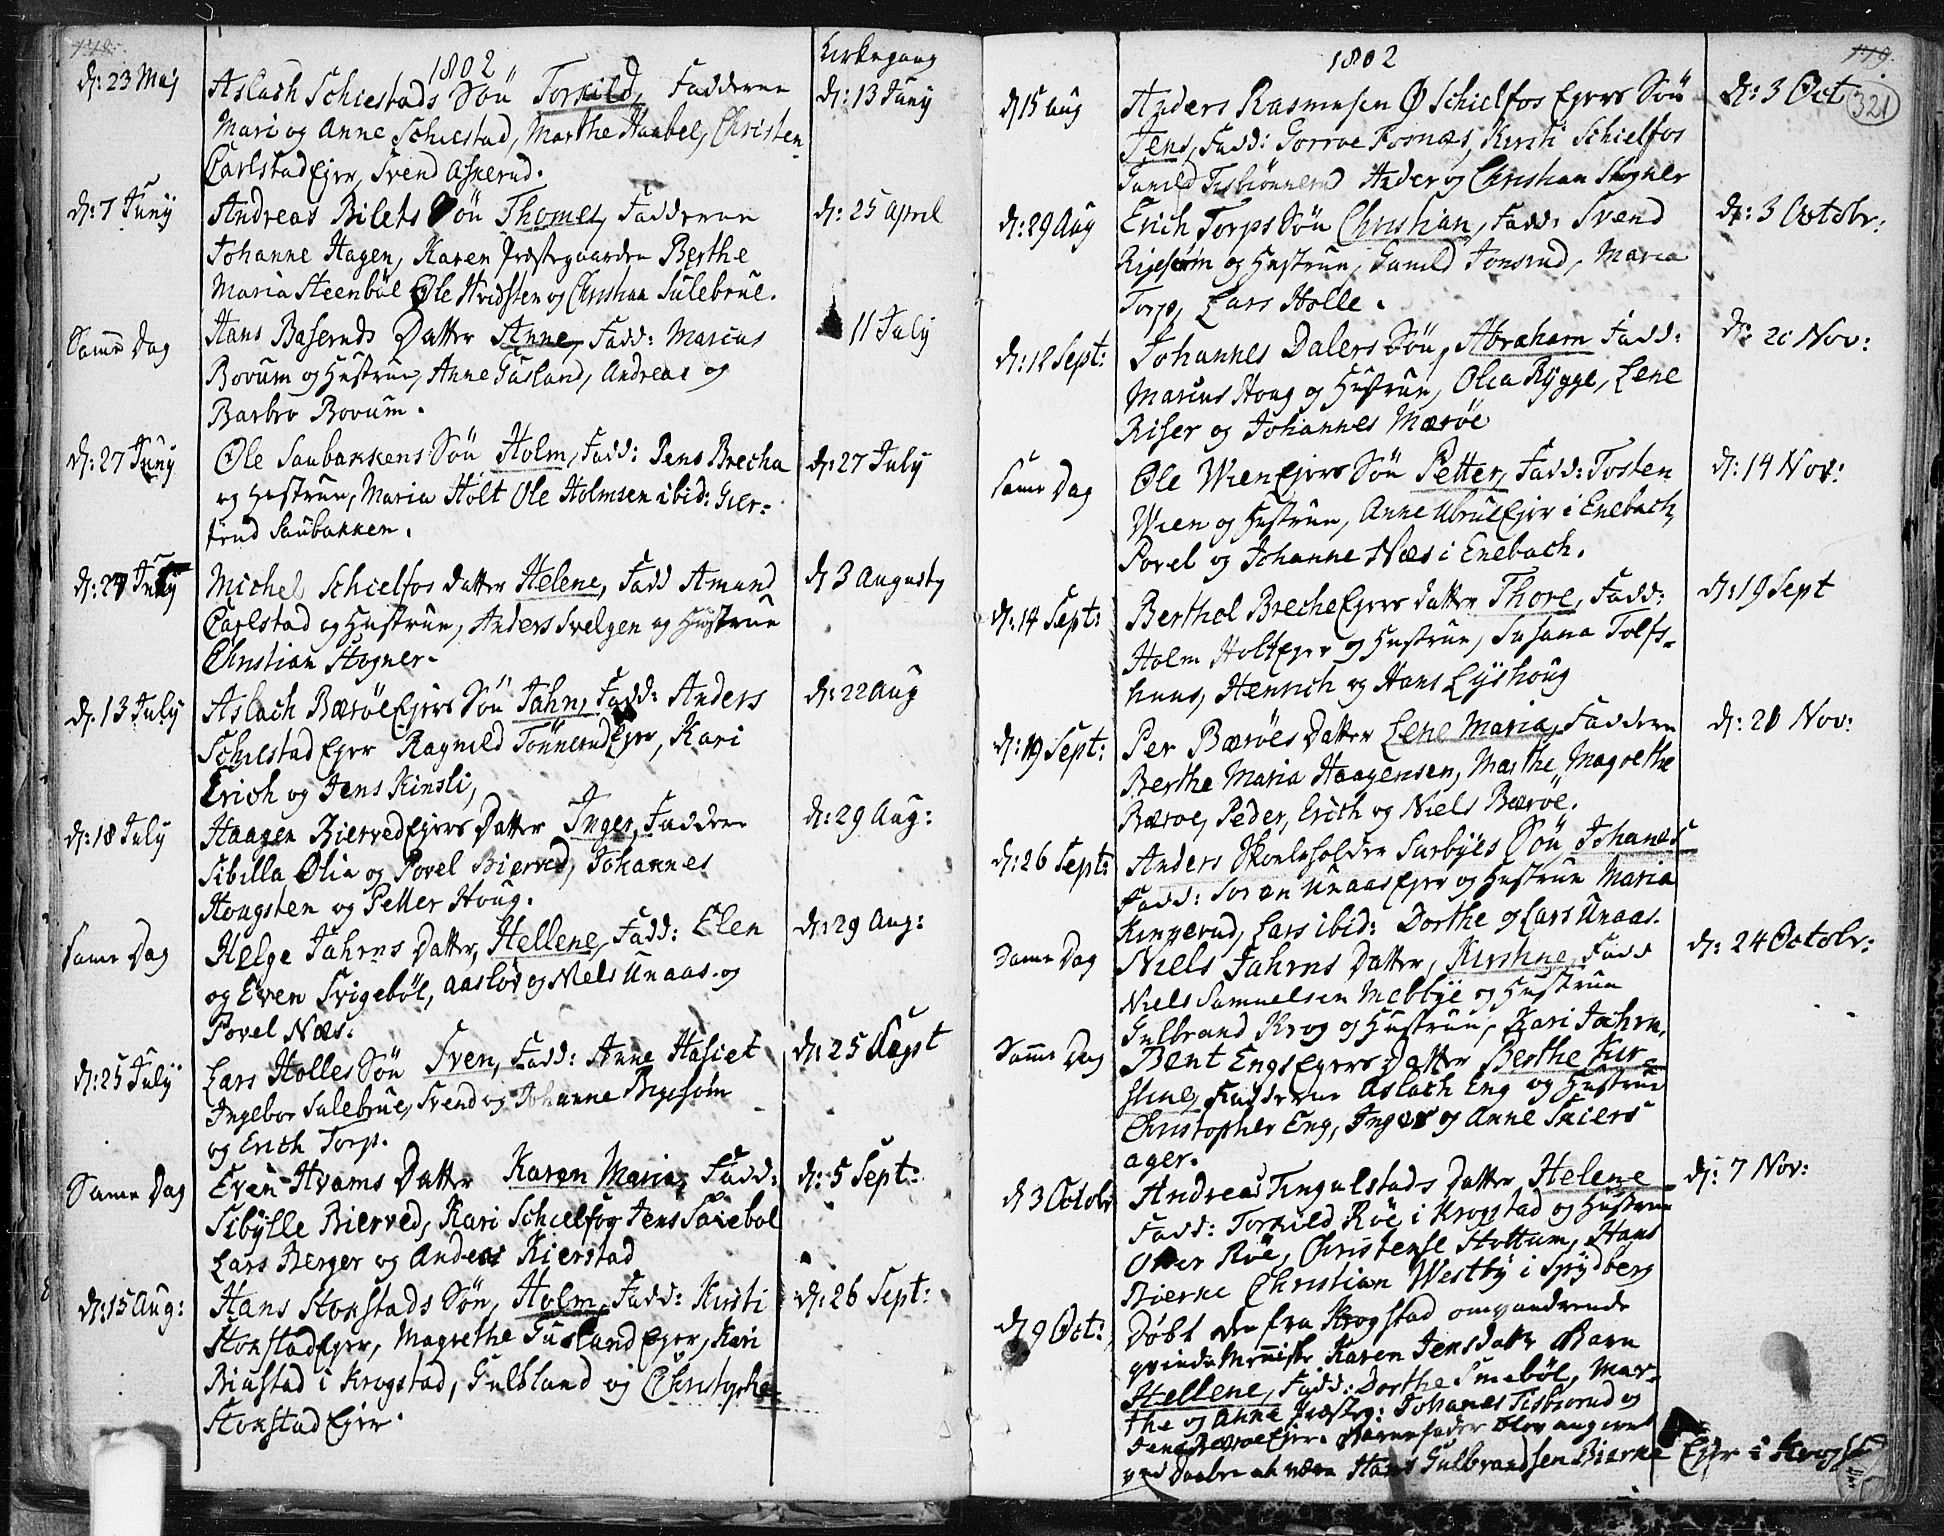 178.
1802
Kirkegang
d: 23 Maj
Aslach Schiestads Søn Torkild, Fadderne
d: 13 Juny
Mari og Anne Schiestad, Marthe Haabel, Christen
Carlstad Ejer, Svend Askerud.
d: 7 Juny
Andreas Bilets Søn Thomes, Fadderne
d: 25 April
Johanne Hagen, Karen Præstegaarden Berthe
Maria Steenbøl Ole Hvidsten og Christian Sulebrue.
Same Dag
Hans Baseruds Datter Anne, Fadd: Marcus
11 July
Bovum og Hustrue, Anne Gusland, Andreas og
Barbro Bovum.
d: 27 Juny
Ole Saubakkens Søn Holm, Fadd: Jens Brecha
d: 27 July
og Hustrue, Maria Holt Ole Holmsen ibid: Gier-
trud Saubakken.
d: 24 July
Michel Schielfos Datter Helene, Fadd Amund
d 3 Augusty
Carlstad og Hustrue, Anders Svelgen og Hustrue
Christian Stogner.
d. 13 July
Aslach Bærøe Ejers Søn Jahn, Fadd: Anders
d: 22 Aug
Schiestad Ejer Ragnild Tønnerud Ejer, Kari
Erich og Jens Kinsli,
d: 18 July
Haagen Bierved Ejers Datter Inger, Faddere
d: 29 Aug:
Sibilla Olia og Povel Bierved, Johannes
Hougsten og Petter Houg.
Same Dag
Helge Jahrns Datter, Hellene, Fadd: Elen
d: 29 Aug:
og Even Svigebøl, Aasløv og Niels Unaas og
Povel Næs.
d: 25 July
Lars Holles Søn Sven, Fadd: Anne Hasiet
d: 25 Augst
Ingebor Sulebrue, Svend og Johanne Rigesom
og Erich Torp.
Same Dag
Even Hvams Datter Karen Maria, Fadd:
d: 5 Sept:
Sibylle Bierved, Kari Schielfos Jens Saxebøl
Lars Berger og Anders Kierstad
d: 15 Aug:
Hans Stokstads Søn, Holm, Fadd: Kirsti
d: 26 Sept:
Stokstad Ejer, Magrethe Gusland Ejer, Kari
Biustad i Krogstad, Gulbrand og Christopher
Stokstad Ejer.
179.
321
1802
d 15 Aug
Anders Rasmusen Ø Schielfos Ejers Søn
d: 3 Oct
Jens, Fadd: Gorroe Fosnæs, Kirsti Schielfos
Gunild Tisbiønnerud Ander og Christian Stogner
d: 29 Aug
Erich Torps Søn Christian, Fadd: Svend
d: 3 Octobr:
Rigesom og Hustrue, Gunild Jonsrud, Maria
Torp, Lars Holle.
d: 12 Sept:
Johannes Dalers Søn, Abraham Fadd:
d: 21 Nov:
Marcus Houg og Hustrue, Olia Rygge, Lene
Riser og Johannes Mærøe
Same Dag
Ole Wien Ejers Søn Petter, Fadd: Tosten
d: 14 Nov:
Wien og Hustrue, Anne Ubrue Ejer i Enebach,
Povel og Johanne Næs i Enebach.
d: 14 Sept:
Berthol Breche Ejers Datter Thore, Fadd:
d: 19 Sept
Holm Holt Ejer og Hustrue, Susana Tolfs-
huus, Henrich og Hans Lyshoug
d: 19 Sept:
Per Bærøes Datter Lene Maria, Faddere
d: 21 Nov:
Berthe Maria Haagensen, Marthe, Magrethe
Bærøe, Peder, Erich og Niels Bærøe.
d: 26 Sept:
Anders Skoleholder Surbyes Søn Johanes
Fadd: Soren Unaas Ejer og Hustrue Maria
Kingerud, Lars ibid: Dorthe og Lars Unaas.
Same Dag
Niels Jahrns Datter, Kirstine, Fadd
d: 24 Octobr:
Niels Samuelsen Mebbye og Hustrue
Gulbrand Krog og Hustrue, Kari Jahrn.
Same Dag
Bent Engs Ejers Datter Berthe Kir-
stine, Fadderne Aslach Eng og Hustrue
Christopher Eng, Inger og Anne Skiers
ager.
d 3 Octobr
Andreas Tingulstads Datter Helene
d: 7 Nov:
Fadd: Torkild Røe i Krogstad og Hustrue
Over Røe, Christense Hottum, Hans
Bierke Christian Westby i Spydberg
d 9 Oct:
Døbt den fra Krogstad omvandrende
qvinde Menniske Karen Jensdatter Barn
Hellene, Fadd: Dorthe Smebøl, Mar-
the og Anne Præsteg: Johanes Tisbiorud og
Jens Bærøe Ejer. Barnefader blev angivet
ved Daaben at være Hans Gulbrandsen Bierke Ejer i Krogst